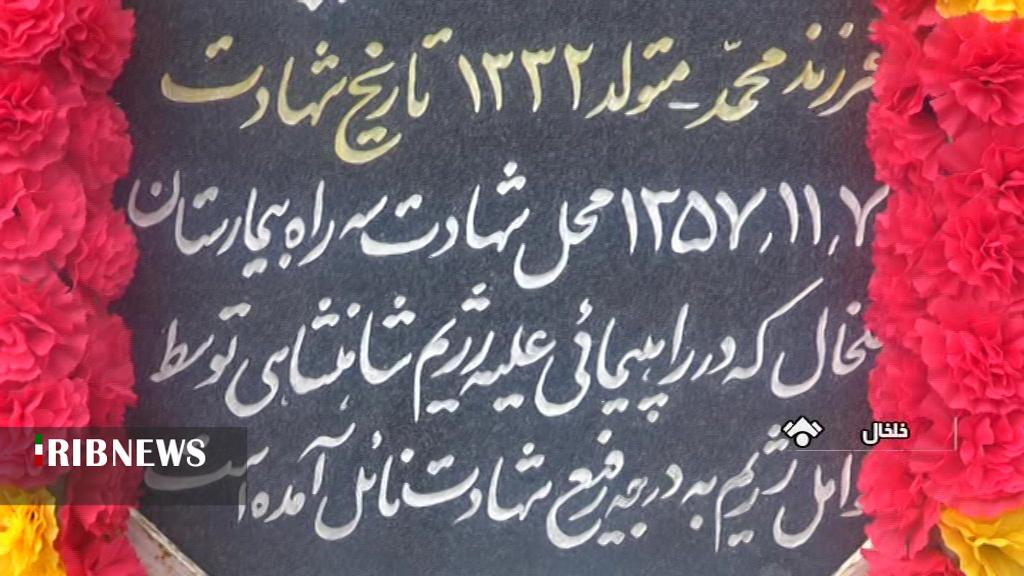 فرزند محمّد - متولد ۱۳۳۲ تاریخ شهادت
۱۳۵۷٫۱۱٫۷ محل شهادت سه راه بیمارستان
خلخال که در راهپیمائی علیه رژیم شاهنشاهی توسط
عوامل رژیم به درجه رفیع شهادت نائل آمده است
خلخال
IRIBNEWS